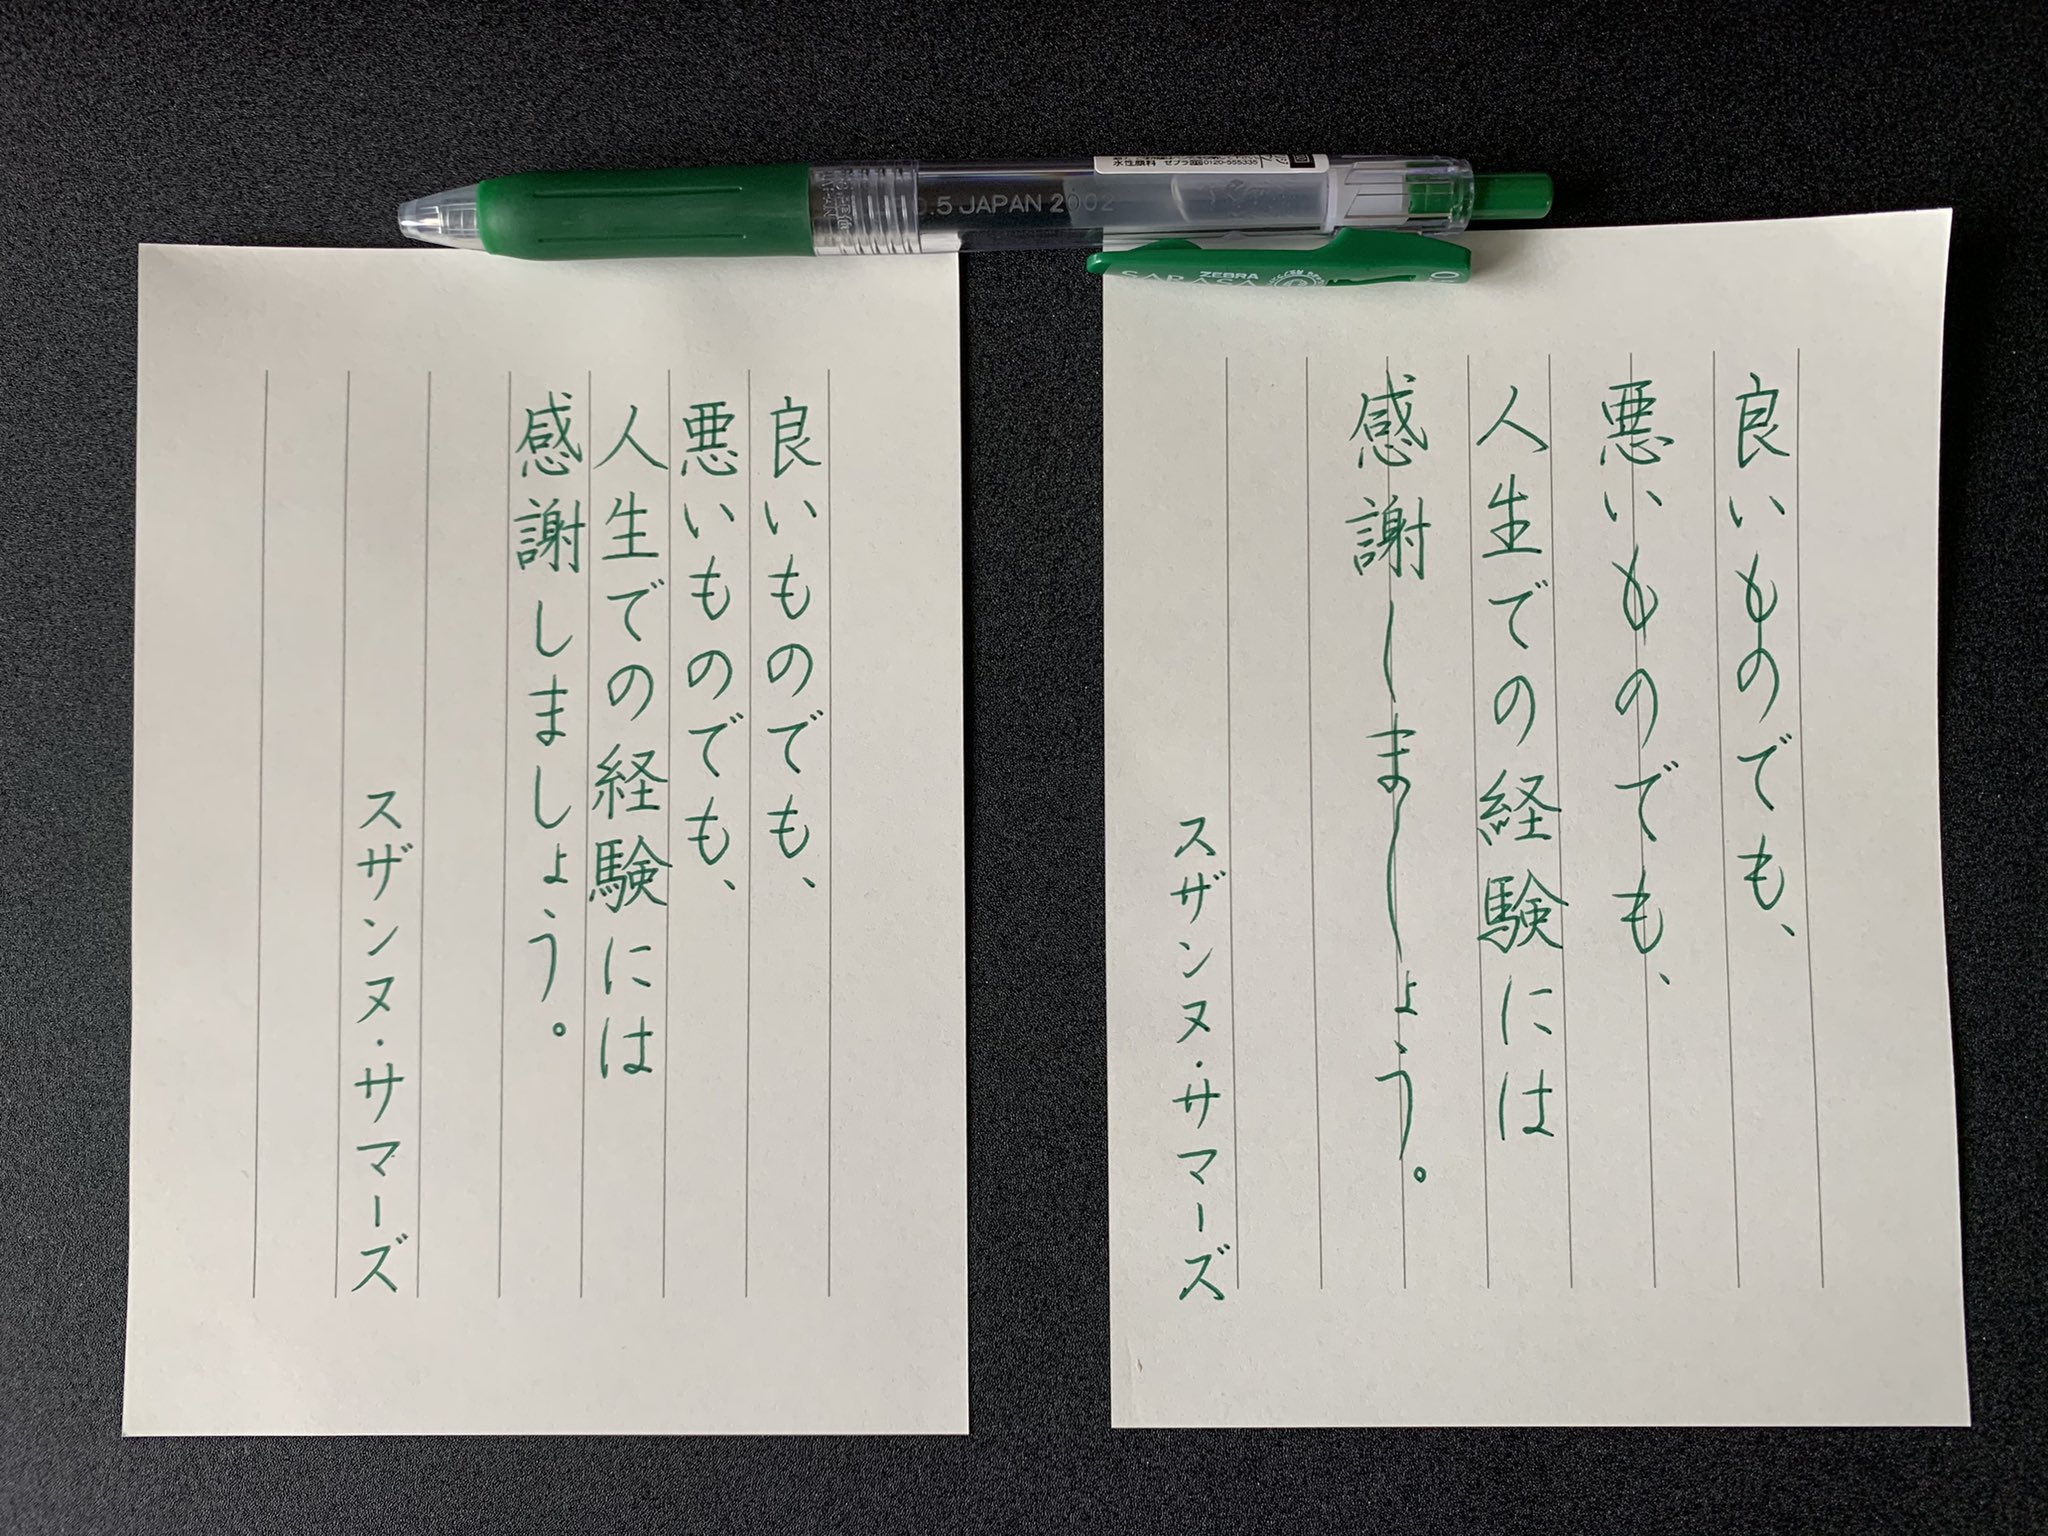 水性顔料 ゼブラ㈱ 0120-555335
0.5 JAPAN 2002
ZEBRA
SARASA
良いものでも、
悪いものでも、
人生での経験には
感謝しましょう。
スザンヌ・サマーズ
良いものでも、
悪いものでも、
人生での経験には
感謝しましょう。
スザンヌ・サマーズ